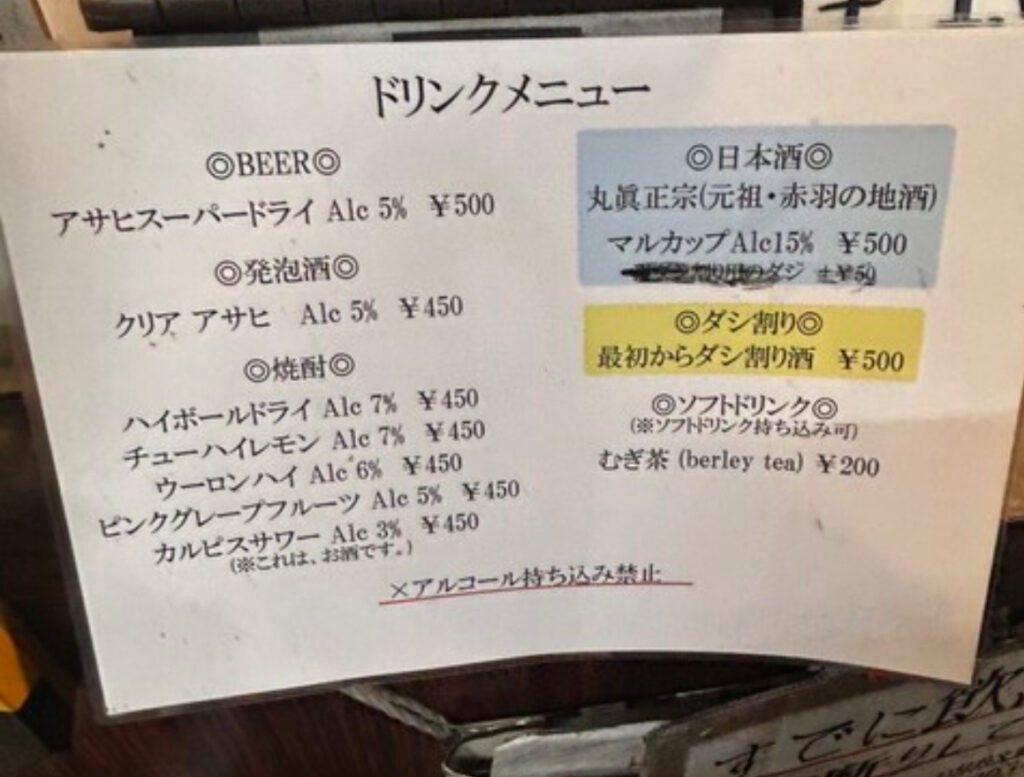 ドリンクメニュー
◎BEER◎
アサヒスーパードライ Alc 5% ￥500
◎発泡酒◎
クリア アサヒ Alc 5% ￥450
◎焼酎◎
ハイボールドライ Alc 7% ￥450
チューハイレモン Alc 7% ￥450
ウーロンハイ Alc 6% ￥450
ピンクグレープフルーツ Alc 5% ￥450
カルピスサワー Alc 3% ￥450
(※これは、お酒です。)
◎日本酒◎
丸眞正宗(元祖・赤羽の地酒)
マルカップ Alc15% ￥500
割り用のダシ ＋￥50
◎ダシ割り◎
最初からダシ割り酒 ￥500
◎ソフトドリンク◎
(※ソフトドリンク持ち込み可)
むぎ茶 (berley tea) ￥200
×アルコール持ち込み禁止
すでに飲